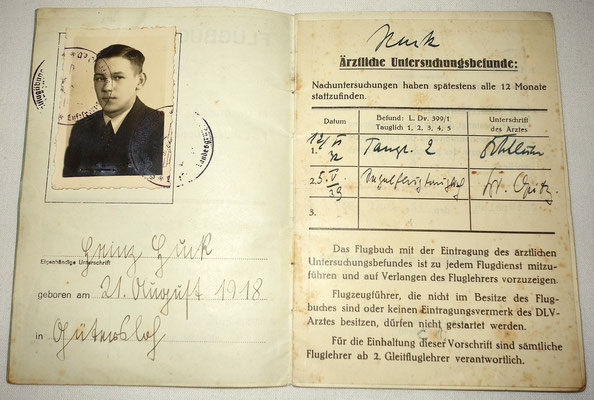 FLUGBU
Landesgru
Heinz Huck
Eigenhändige Unterschrift
geboren am 21. August 1918
in Gütersloh
Huck
Ärztliche Untersuchungsbefunde:
Nachuntersuchungen haben spätestens alle 12 Monate
stattzufinden.
Datum
Befund: L. Dv. 399/1
Tauglich 1, 2, 3, 4, 5
Unterschrift
des Arztes
1.
Taugl. 2
2. 5. V 39
Segelflugtauglich
Dr. Opitz.
3.
Das Flugbuch mit der Eintragung des ärztlichen
Untersuchungsbefundes ist zu jedem Flugdienst mitzu-
führen und auf Verlangen des Fluglehrers vorzuzeigen.
Flugzeugführer, die nicht im Besitze des Flug-
buches sind oder keinen Eintragungsvermerk des DLV-
Arztes besitzen, dürfen nicht gestartet werden.
Für die Einhaltung dieser Vorschrift sind sämtliche
Fluglehrer ab 2. Gleitfluglehrer verantwortlich.